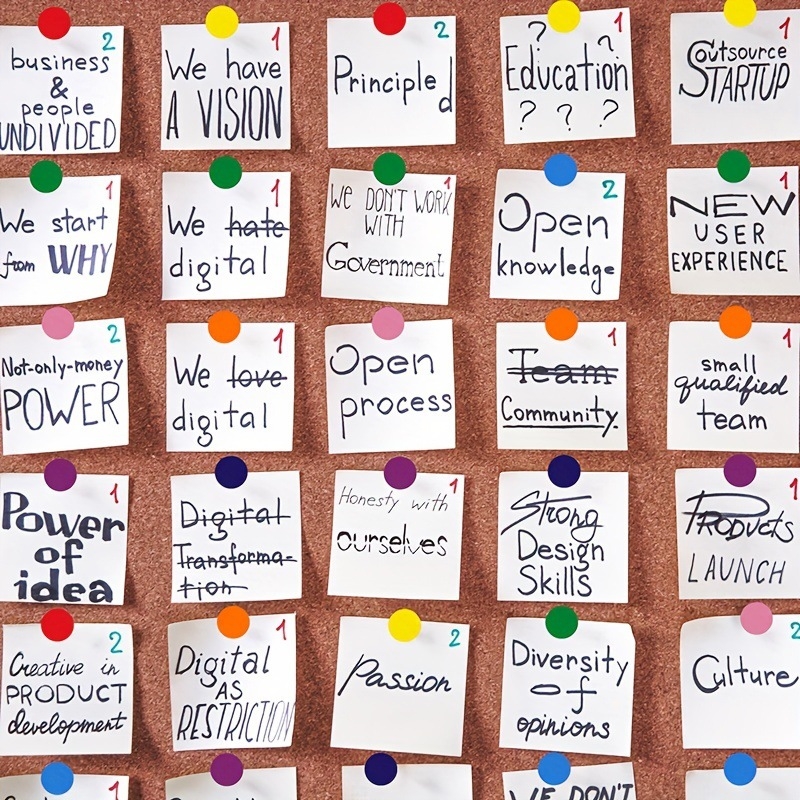 2
business
&
people
UNDIVIDED
1
We have
A VISION
2
Principled
1
? ?
Education
? ? ?
1
Outsource
STARTUP
1
We start
from WHY
1
We hate
digital
1
WE DON'T WORK
WITH
Government
2
Open
knowledge
1
NEW
USER
EXPERIENCE
2
Not-only-money
POWER
1
We love
digital
Open
process
1
Team
Community.
1
small
qualified
team
1
Power
of
idea
Digital
Transforma-
tion
1
Honesty with
ourselves
Strong
Design
Skills
1
PRODUCTS
LAUNCH
2
Creative in
PRODUCT
development
1
Digital
AS
RESTRICTION
2
Passion
Diversity
of
opinions
2
Culture
1
1
WE DON'T